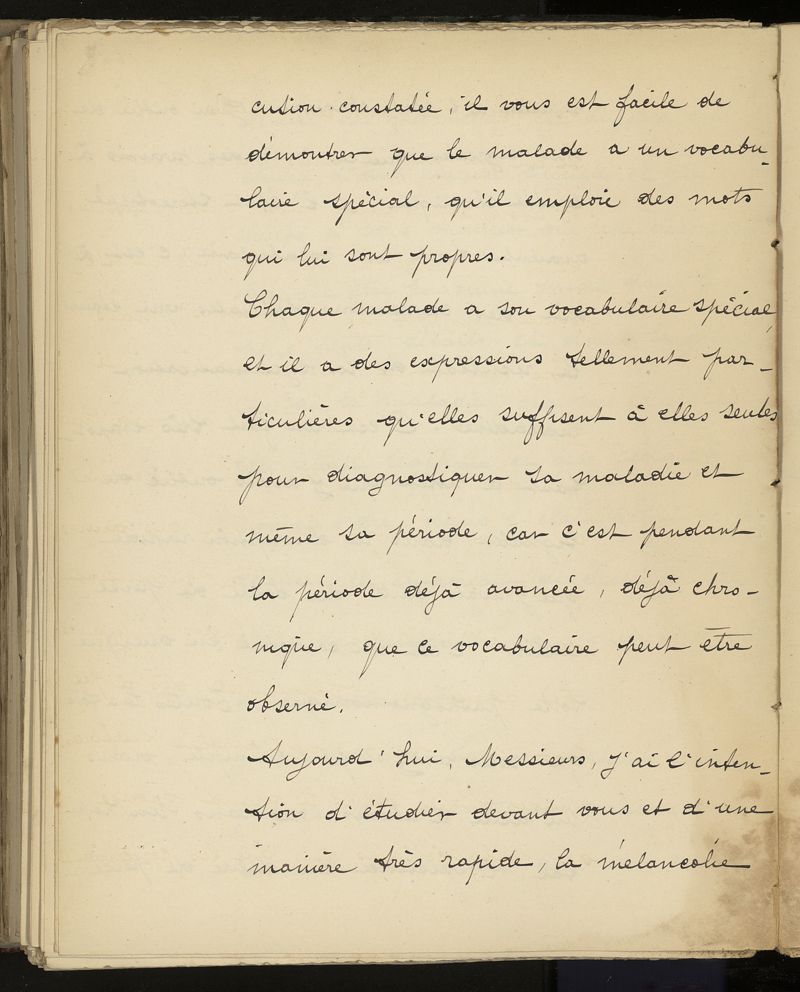 cution constatée, il vous est facile de
démontrer que le malade a un vocabu-
laire spécial, qu'il emploie des mots
qui lui sont propres.
Chaque malade a son vocabulaire spécial,
et il a des expressions tellement par-
ticulières qu'elles suffisent à elles seules
pour diagnostiquer sa maladie et
même sa période, car c'est pendant
la période déjà avancée, déjà chro-
nique, que ce vocabulaire peut être
observé.
Aujourd'hui, Messieurs, j'ai l'inten-
tion d'étudier devant vous et d'une
manière très rapide, la mélancolie